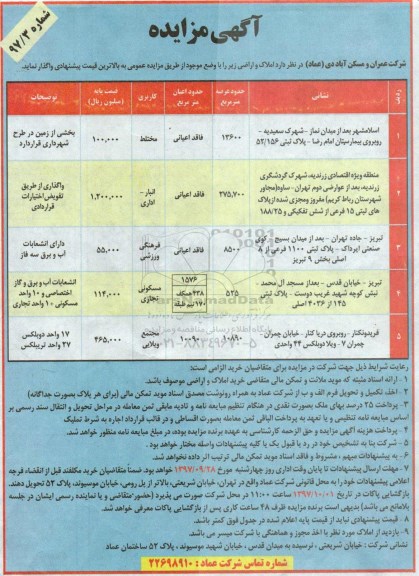 شماره ۹۷/۳
آگهی مزایده
شرکت عمران و مسکن آباد دی (عماد) در نظر دارد املاک و اراضی زیر را با وضع موجود از طریق مزایده عمومی به بالاترین قیمت پیشنهادی واگذار نماید.
ردیف
نشانی
حدود عرصه متر مربع
حدود اعیان متر مربع
کاربری
قیمت پایه (میلیون ریال)
توضیحات
۱
اسلامشهر بعد از میدان نماز - شهرک سعیدیه -
روبروی بیمارستان امام رضا - پلاک ثبتی ۵۲/۱۵۶
۱۳۶۰۰
فاقد اعیانی
مختلط
۱۰۰,۰۰۰
بخشی از زمین در طرح
شهرداری قرار دارد
۲
منطقه ویژه اقتصادی زرندیه، شهرک گردشگری
زرندیه، بعد از عوارضی دوم تهران - ساوه (مجاور
شهرستان رباط کریم) مفروز و مجزی شده از پلاک
های ثبتی ۱۵ فرعی از شش تفکیکی و ۱۸۸/۲۵
۲۷۵,۷۰۰
فاقد اعیانی
انبار -
اداری
۱,۲۰۰,۰۰۰
واگذاری از طریق
تفویض اختیارات
قراردادی
۳
تبریز - جاده تهران - بعد از میدان بسیج - کوی
صنعتی ایرداک - پلاک ثبتی ۱۱۰۰ فرعی از ۸
اصلی بخش ۹ تبریز
۸۵۰۰
فاقد اعیانی
فرهنگی
ورزشی
۵۵,۰۰۰
دارای انشعابات
آب و برق سه فاز
۴
تبریز - خیابان قدس - بعد از مسجد آل محمد -
نبش کوچه شهید غریب دوست - پلاک ثبتی
۱۴۵ از ۴۰۳۶ اصلی
۵۲۵
۱۵۷۶
۴۳۸ همکف
۱۷۰ نیم طبقه
مسکونی
تجاری
۱۱۴,۰۰۰
انشعابات آب و برق و گاز
اختصاصی و ۱۰ واحد
مسکونی و ۱۰ واحد تجاری
۵
فریدونکنار - روبروی دریا کنار - خیابان چمران -
چمران ۷ - ویلا دوبلکس ۴۴ واحدی
۱۰۸۹۰
مجتمع
ویلایی
۴۶۵,۰۰۰
۱۷ واحد دوبلکس
۲۷ واحد تریبلکس
رعایت شرایط ذیل جهت شرکت در مزایده برای متقاضیان خرید الزامی است:
۱- ارائه اسناد مثبته که موید ملائت و تمکن مالی متقاضی خرید املاک و اراضی موصوف باشد.
۲- اخذ، تکمیل و تحویل فرم الف و ب از شرکت عماد به همراه رونوشت مصدق اسناد موید تمکن مالی (برای هر پلاک بصورت جداگانه)
۳- پرداخت ۲۵ درصد بهای ملک بصورت نقدی در هنگام تنظیم مبایعه نامه و تادیه مابقی ثمن معامله در مراحل تحویل و انتقال سند رسمی بر
اساس مبایعه نامه تنظیمی و یا تعهد به پرداخت الباقی ثمن معامله بصورت اقساطی و در قالب قرارداد اجاره به شرط تملیک
۴- پرداخت هزینه آگهی مزایده و حق الزحمه کارشناسی به عهده برنده مزایده بوده، در مبلغ مبایعه نامه منظور خواهد شد.
۵- شرکت بنا به تشخیص خود در رد یا قبول یک یا کلیه پیشنهادات واصله مختار خواهد بود.
۶- به پیشنهادات مبهم ، مشروط و فاقد اسناد موید تمکن مالی ترتیب اثر داده نخواهد شد.
۷- مهلت ارسال پیشنهادات تا پایان وقت اداری روز چهارشنبه مورخ ۱۳۹۷/۰۹/۲۸ خواهد بود. ضمنا متقاضیان خرید مکلفند قبل از انقضاء فرجه
اعلامی پیشنهادات خود را به محل قانونی شرکت عماد واقع در تهران، خیابان شریعتی، بالاتر از پل رومی، خیابان موسیوند، پلاک ۵۲ تحویل دهند.
بازگشایی پاکات در تاریخ ۱۳۹۷/۱۰/۰۱ ساعت ۱۱:۰۰ در محل شرکت صورت می پذیرد (حضور متقاضی و یا نماینده رسمی ایشان در جلسه
بلامانع می باشد) بدیهی است برنده مزایده ظرف ۴۸ ساعت کاری پس از بازگشایی پاکات معرفی خواهد شد.
۸- قیمت پیشنهادی نباید از قیمت پایه اعلام شده در جدول فوق کمتر باشد.
۹- بازدید از املاک مورد نظر با اخذ مجوز و هماهنگی با شرکت میسر می باشد.
نشانی شرکت : خیابان شریعتی ، نرسیده به میدان قدس ، خیابان شهید موسیوند ، پلاک ۵۲ ساختمان عماد
شماره تماس شرکت عماد : ۲۲۶۹۸۹۱۰